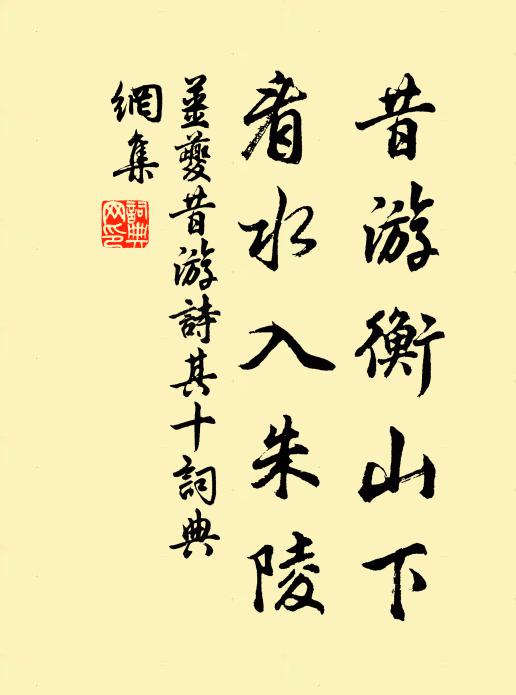 昔游衡山下
看水入朱陵
姜夔昔游詩其十詞典
網集
詞典網印